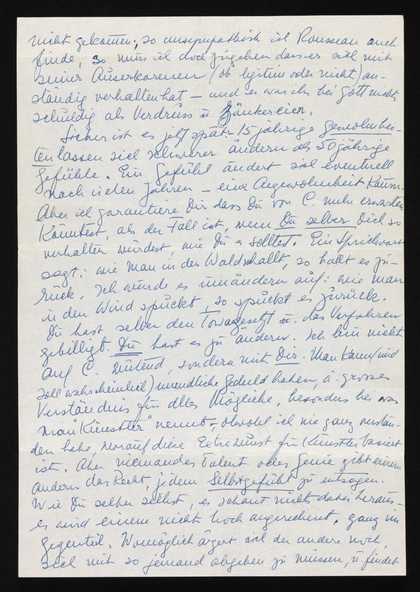 nicht gekommen; so unsympathisch ist Rousseau auch
finde, so muss ich doch zugeben dass er sich mit
seiner Auserkorenen (ob legitim oder nicht) an-
ständig verhalten hat – und er war ihr bei Gott nichts
schuldig als Verdruss u. Zänkereien.
Sicher ist es jetzt spät: 15 jährige Gewohnhei-
ten lassen sich schwerer ändern als 50 jährige
Gefühle. Ein Gefühl ändert sich eventuell
nach vielen Jahren – eine Angewohnheit kaum.
Aber ich garantiere Dir dass Du von C. mehr erwarten
könntest, als der Fall ist, wenn Du selber Dich so
verhalten würdest wie Du solltest. Ein Sprichwort
sagt: wie man in den Wald schallt, so hallt es zu-
rück. Ich würde es umändern auf: wie man
in den Wind spuckt, so spuckt es zurück.
Du hast selber den Ton angesetzt u. das Verfahren
gebilligt. Du hast es zu ändern. Ich bin nicht
auf C. wütend, sondern mit Dir. Man kann (und
soll wahrscheinlich) unendliche Geduld haben, u. grosses
Verständnis für alles Mögliche, besonders bei was
man "Künstler" nennt, obwohl ich nie ganz verstan-
den habe, worauf diese Ehrfurcht für Künstler basiert
ist. Aber niemandes Talent oder Genie gibt einem
andern das Recht, jedem Selbstgefühl zu entsagen.
Wie Du selber siehst, es schaut nichts dabei heraus –
es wird einem nicht hoch angerechnet, ganz im
Gegenteil. Womöglich ärgert sich der andere noch,
sich mit so jemand abgeben zu müssen, u. findet